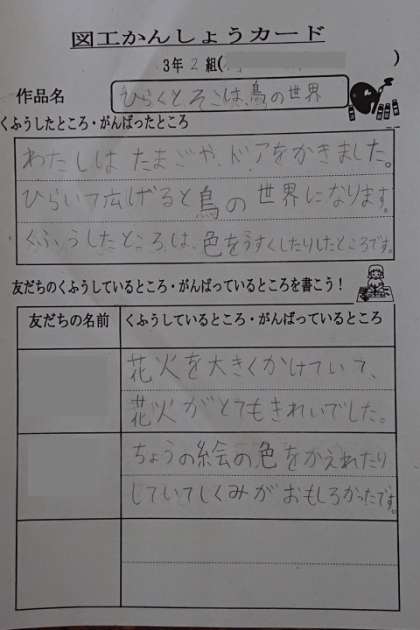 図工かんしょうカード
3年2組( )
作品名 ひらくと、そこは、鳥の世界
くふうしたところ・がんばったところ
わたしはたまごや、ドアをかきました。
ひらいて広げると鳥の世界になります。
くふうしたところは、色をうすくしたりしたところです。
友だちのくふうしているところ・がんばっているところを書こう!
友だちの名前 くふうしているところ・がんばっているところ
花火を大きくかけていて、
花火がとてもきれいでした。
ちょうの絵の色をかえれたり
していてしくみがおもしろかったです。